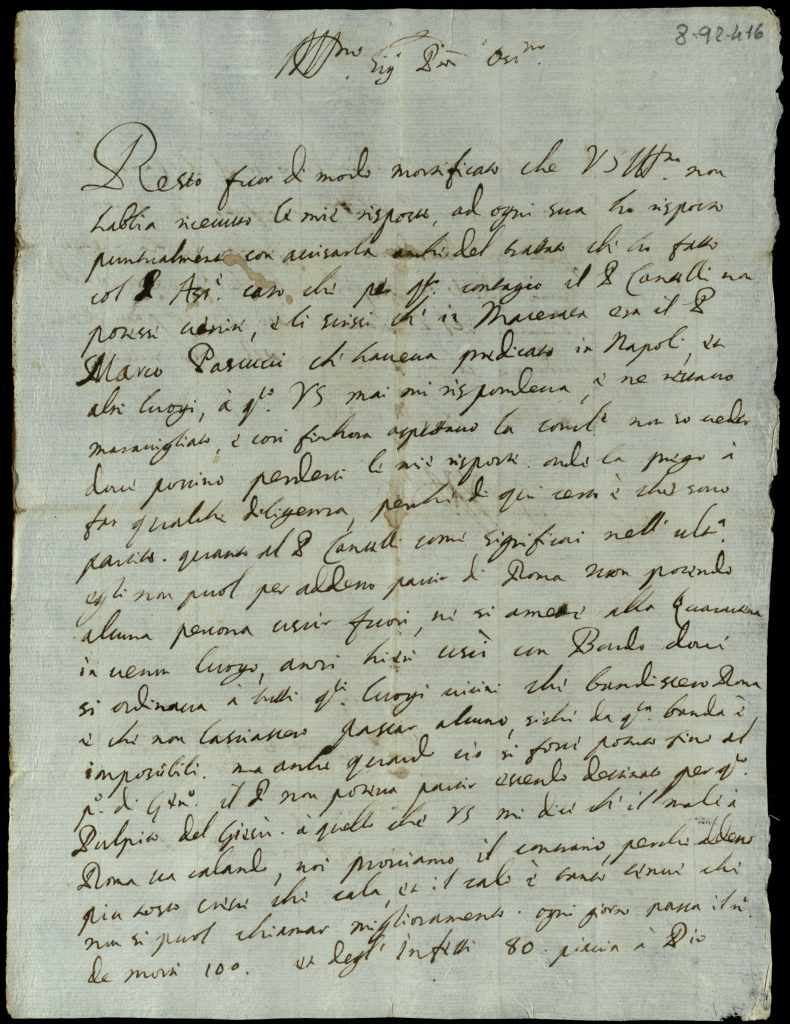 8-92-416
Ill.mo Sig.r Pron Oss.mo
Resto fuor di modo mortificato che VS Ill.ma non
habbia riceuuto le mie risposte, ad ogni sua ho risposto
puntualmente con auisarla anche del trattato che ho fatto
col P Ass.te caso che per q.to contagio il P Cancelli non
potesse uenire, e li scrissi ch' in Macerata era il P
Marco Pascucci ch' haueua predicato in Napoli, et
altri luoghi, à q.to VS mai mi rispondeua, e ne restauo
marauigliato, e così finhora aspettauo la non so ueder
doue possino perdersi le mie risposte. onde la prego à
far qualche diligenza, perche di qui certo è che sono
partite. quanto al P Cancelli come significai nell' ult.a
egli non puol per adesso partir di Roma non potendo
alcuna persona uscir fuori, ne si amette alla Quarantena
in uerun luogo, anzi hieri uscì un Bando doue
si ordinaua à tutti q.ti luoghi uicini che bandissero Roma
e che non lasciassero passar alcuno, sichè da q.ta banda è
impossibili. ma anche quando ciò si fosse potuto fino al
p.o di il P non poteua partir essendo destinato per q.to
Pulpito del Giesù. à quello che VS mi dice ch' il male à
Roma ua calando, noi prouiamo il contrario, perche adesso
piu tosto cresce che cala, et il calo è tanto tenue che
non si puol chiamar miglioramento. ogni giorno passa il n.o
de morti 100. et degl' Infetti 80. piaccia à Dio